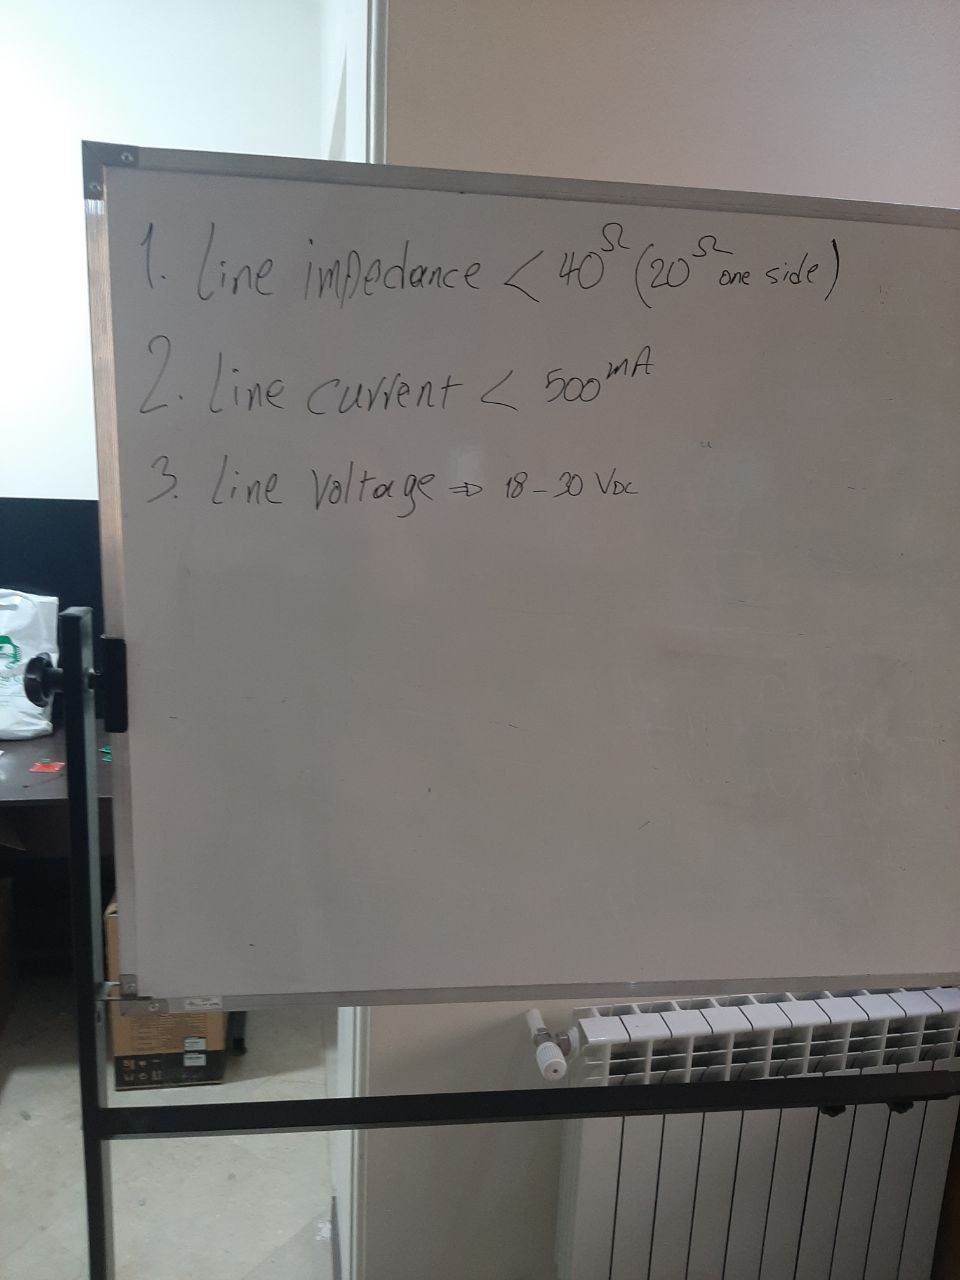 1. Line impedance < 40Ω (20Ω one side)
2. Line current < 500mA
3. Line Voltage ⇒ 18-30 VDC